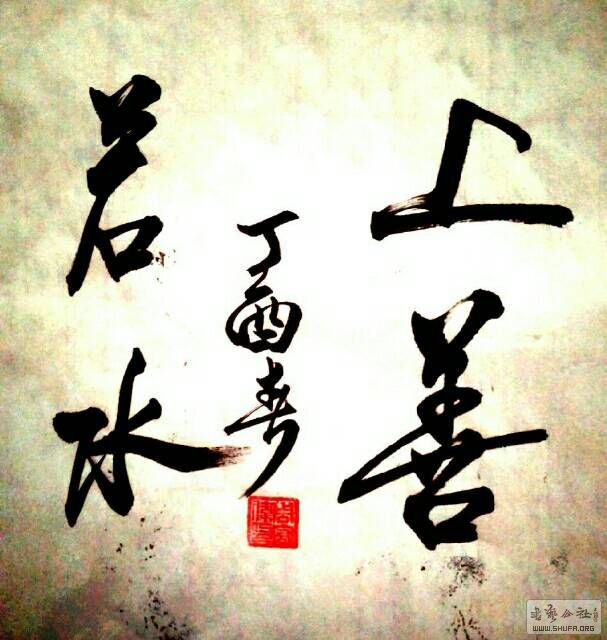 上善
若水
丁酉春
WWW.SHUFA.ORG